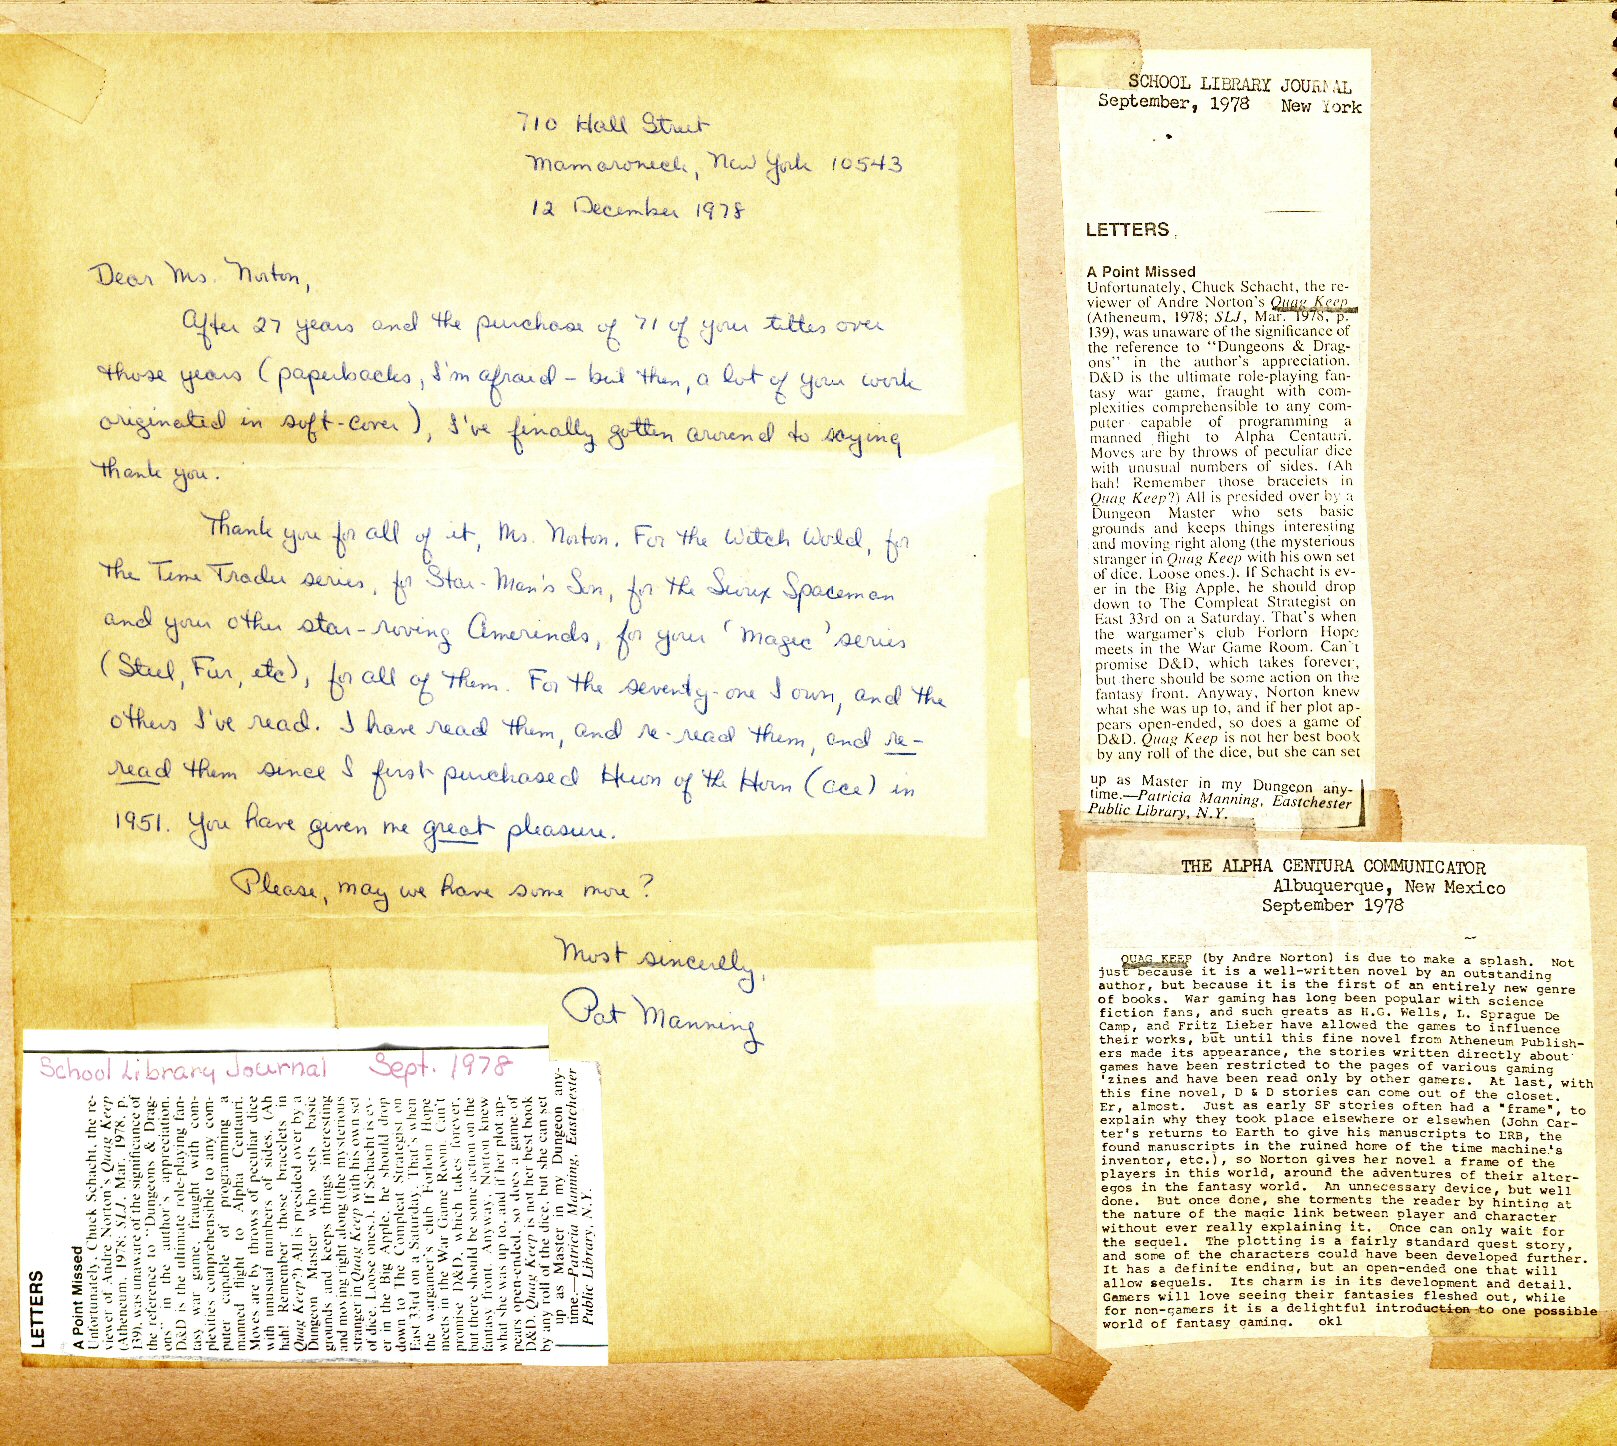 710 Hall Street
Mamaroneck, New York 10543
12 December 1978
Dear Ms. Norton,
After 27 years and the purchase of 71 of your titles over
those years (paperbacks, I'm afraid - but then, a lot of your work
originated in soft-cover), I've finally gotten around to saying
thank you.
Thank you for all of it, Ms. Norton. For the Witch World, for
the Time Trader series, for Star-Man's Son, for the Sioux Spaceman
and your other star-roving Amerinds, for your 'Magic' series
(Steel, Fur, etc), for all of them. For the seventy-one I own, and the
others I've read. I have read them, and re-read them, and re-
read them since I first purchased Huon of the Horn (ace) in
1951. You have given me great pleasure.
Please, may we have some more?
Most sincerely,
Pat Manning
School Library Journal Sept. 1978
LETTERS
A Point Missed
Unfortunately, Chuck Schacht, the re-
viewer of Andre Norton's Quag Keep
(Atheneum, 1978; SLJ, Mar. 1978, p.
139), was unaware of the significance of
the reference to "Dungeons & Drag-
ons" in the author's appreciation.
D&D is the ultimate role-playing fan-
tasy war game, fraught with com-
plexities comprehensible to any com-
puter capable of programming a
manned flight to Alpha Centauri.
Moves are by throws of peculiar dice
with unusual numbers of sides. (Ah
hah! Remember those bracelets in
Quag Keep?) All is presided over by a
Dungeon Master who sets basic
grounds and keeps things interesting
and moving right along (the mysterious
stranger in Quag Keep with his own set
of dice. Loose ones.). If Schacht is ev-
er in the Big Apple, he should drop
down to The Compleat Strategist on
East 33rd on a Saturday. That's when
the wargamer's club Forlorn Hope
meets in the War Game Room. Can't
promise D&D, which takes forever,
but there should be some action on the
fantasy front. Anyway, Norton knew
what she was up to, and if her plot ap-
pears open-ended, so does a game of
D&D. Quag Keep is not her best book
by any roll of the dice, but she can set
up as Master in my Dungeon any-
time.—Patricia Manning, Eastchester
Public Library, N.Y.
SCHOOL LIBRARY JOURNAL
September, 1978 New York
LETTERS
A Point Missed
Unfortunately, Chuck Schacht, the re-
viewer of Andre Norton's Quag Keep
(Atheneum, 1978; SLJ, Mar. 1978, p.
139), was unaware of the significance of
the reference to "Dungeons & Drag-
ons" in the author's appreciation.
D&D is the ultimate role-playing fan-
tasy war game, fraught with com-
plexities comprehensible to any com-
puter capable of programming a
manned flight to Alpha Centauri.
Moves are by throws of peculiar dice
with unusual numbers of sides. (Ah
hah! Remember those bracelets in
Quag Keep?) All is presided over by a
Dungeon Master who sets basic
grounds and keeps things interesting
and moving right along (the mysterious
stranger in Quag Keep with his own set
of dice. Loose ones.). If Schacht is ev-
er in the Big Apple, he should drop
down to The Compleat Strategist on
East 33rd on a Saturday. That's when
the wargamer's club Forlorn Hope
meets in the War Game Room. Can't
promise D&D, which takes forever,
but there should be some action on the
fantasy front. Anyway, Norton knew
what she was up to, and if her plot ap-
pears open-ended, so does a game of
D&D. Quag Keep is not her best book
by any roll of the dice, but she can set
up as Master in my Dungeon any-
time.—Patricia Manning, Eastchester
Public Library, N.Y.
THE ALPHA CENTURA COMMUNICATOR
Albuquerque, New Mexico
September 1978
QUAG KEEP (by Andre Norton) is due to make a splash. Not
just because it is a well-written novel by an outstanding
author, but because it is the first of an entirely new genre
of books. War gaming has long been popular with science
fiction fans, and such greats as H.G. Wells, L. Sprague De
Camp, and Fritz Lieber have allowed the games to influence
their works, but until this fine novel from Atheneum Publish-
ers made its appearance, the stories written directly about
games have been restricted to the pages of various gaming
'zines and have been read only by other gamers. At last, with
this fine novel, D & D stories can come out of the closet.
Er, almost. Just as early SF stories often had a "frame", to
explain why they took place elsewhere or elsewhen (John Car-
ter's returns to Earth to give his manuscripts to ERB, the
found manuscripts in the ruined home of the time machine's
inventor, etc.), so Norton gives her novel a frame of the
players in this world, around the adventures of their alter-
egos in the fantasy world. An unnecessary device, but well
done. But once done, she torments the reader by hinting at
the nature of the magic link between player and character
without ever really explaining it. Once can only wait for
the sequel. The plotting is a fairly standard quest story,
and some of the characters could have been developed further.
It has a definite ending, but an open-ended one that will
allow sequels. Its charm is in its development and detail.
Gamers will love seeing their fantasies fleshed out, while
for non-gamers it is a delightful introduction to one possible
world of fantasy gaming. okl